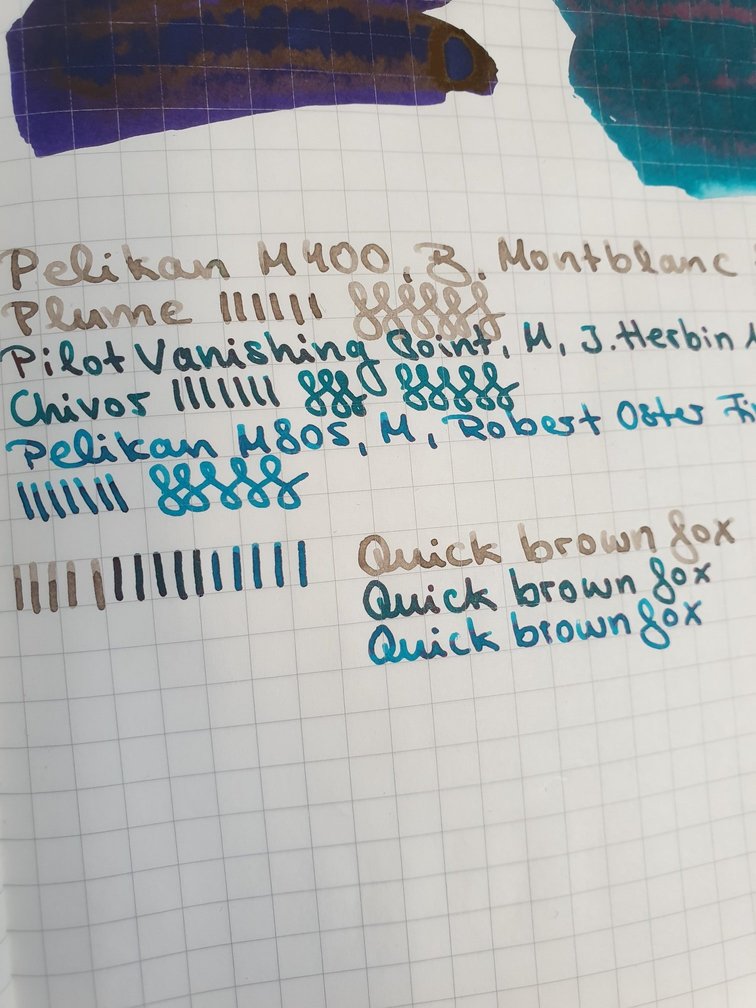 Pelikan M400, B, Montblanc
Plume
Pilot Vanishing Point, M, J. Herbin
Chivor
Pelikan M805, M, Robert Oster
Quick brown fox
Quick brown fox
Quick brown fox